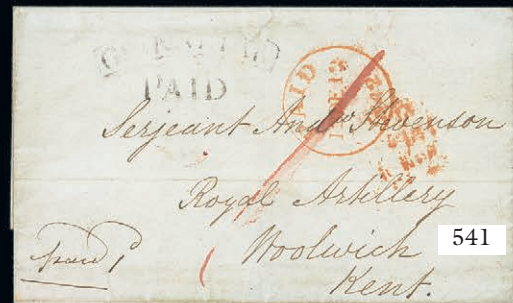 PAID
PAID
Serjeant Andw Stevenson
Royal Artillery
Woolwich
Kent.
paid
541